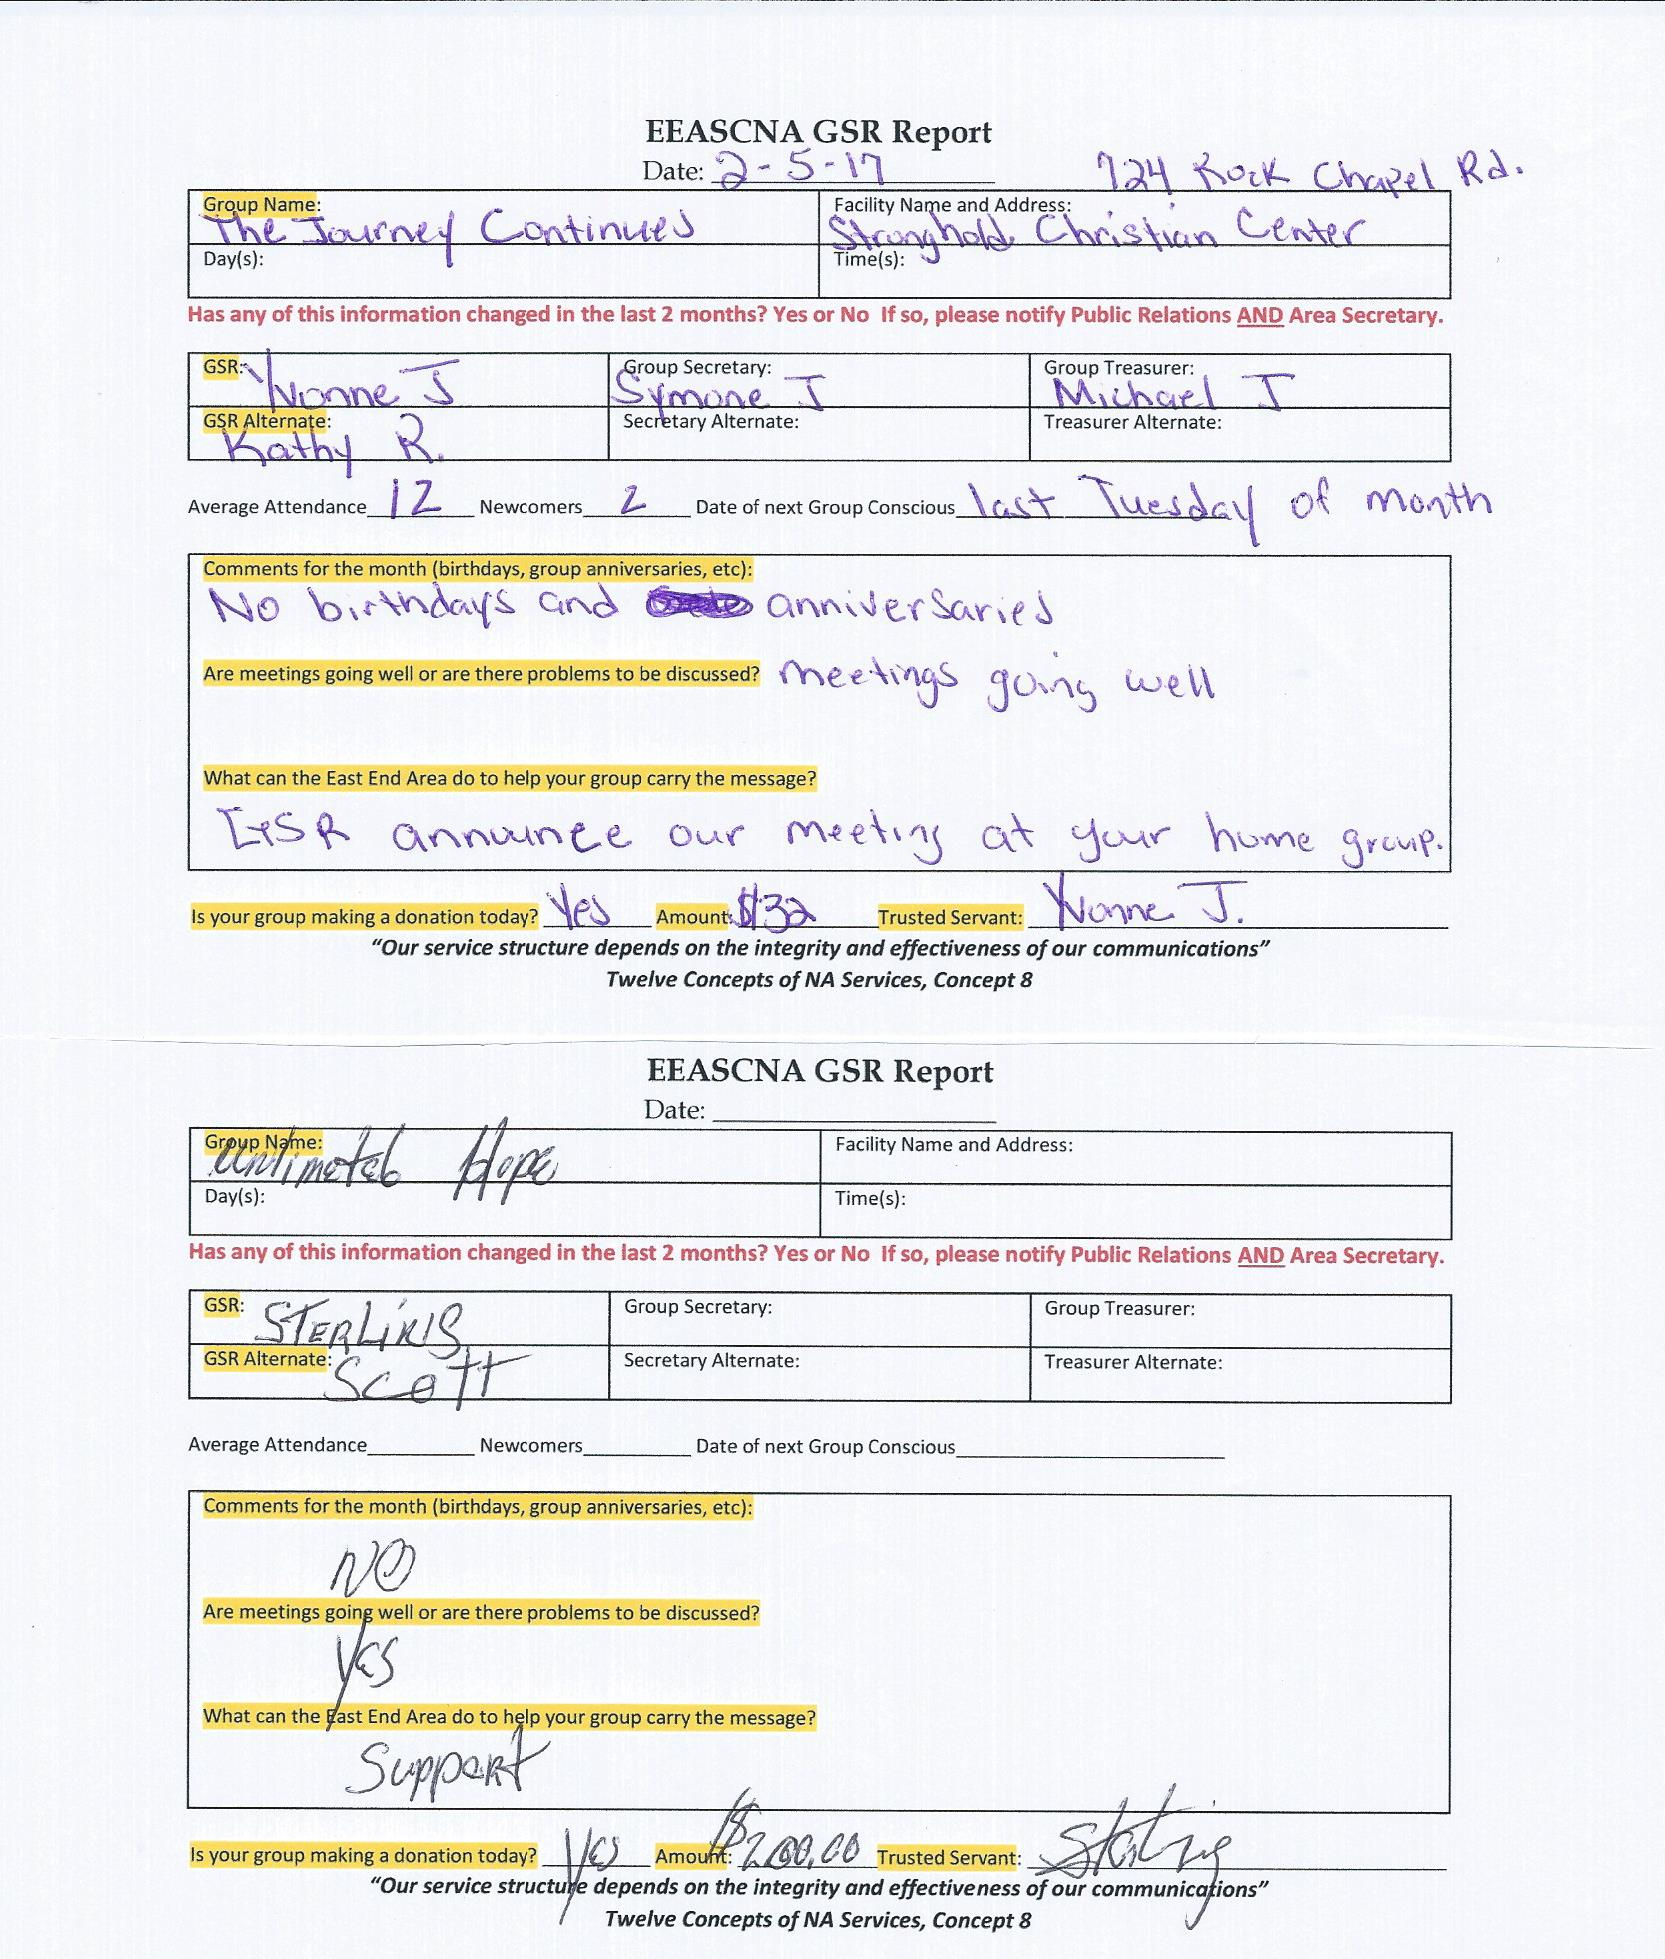 EEASCNA GSR Report
Date: 2-5-17 724 Rock Chapel Rd.
Group Name: Facility Name and Address:
The Journey Continues Stronghold Christian Center
Day(s): Time(s):
Has any of this information changed in the last 2 months? Yes or No If so, please notify Public Relations AND Area Secretary.
GSR: Yvonne J Group Secretary: Symone J Group Treasurer: Michael J
GSR Alternate: Kathy R. Secretary Alternate: Treasurer Alternate:
Average Attendance 12 Newcomers 2 Date of next Group Conscious last Tuesday of month
Comments for the month (birthdays, group anniversaries, etc):
No birthdays and anniversaries
Are meetings going well or are there problems to be discussed? meetings going well
What can the East End Area do to help your group carry the message?
GSR announce our meeting at your home group.
Is your group making a donation today? Yes Amount: $32 Trusted Servant: Yvonne J.
"Our service structure depends on the integrity and effectiveness of our communications"
Twelve Concepts of NA Services, Concept 8
EEASCNA GSR Report
Date:
Group Name: Facility Name and Address:
Unlimeted Hope
Day(s): Time(s):
Has any of this information changed in the last 2 months? Yes or No If so, please notify Public Relations AND Area Secretary.
GSR: STERLING Group Secretary: Group Treasurer:
GSR Alternate: Scott Secretary Alternate: Treasurer Alternate:
Average Attendance Newcomers Date of next Group Conscious
Comments for the month (birthdays, group anniversaries, etc):
NO
Are meetings going well or are there problems to be discussed?
Yes
What can the East End Area do to help your group carry the message?
Support
Is your group making a donation today? Yes Amount: $200.00 Trusted Servant:
"Our service structure depends on the integrity and effectiveness of our communications"
Twelve Concepts of NA Services, Concept 8